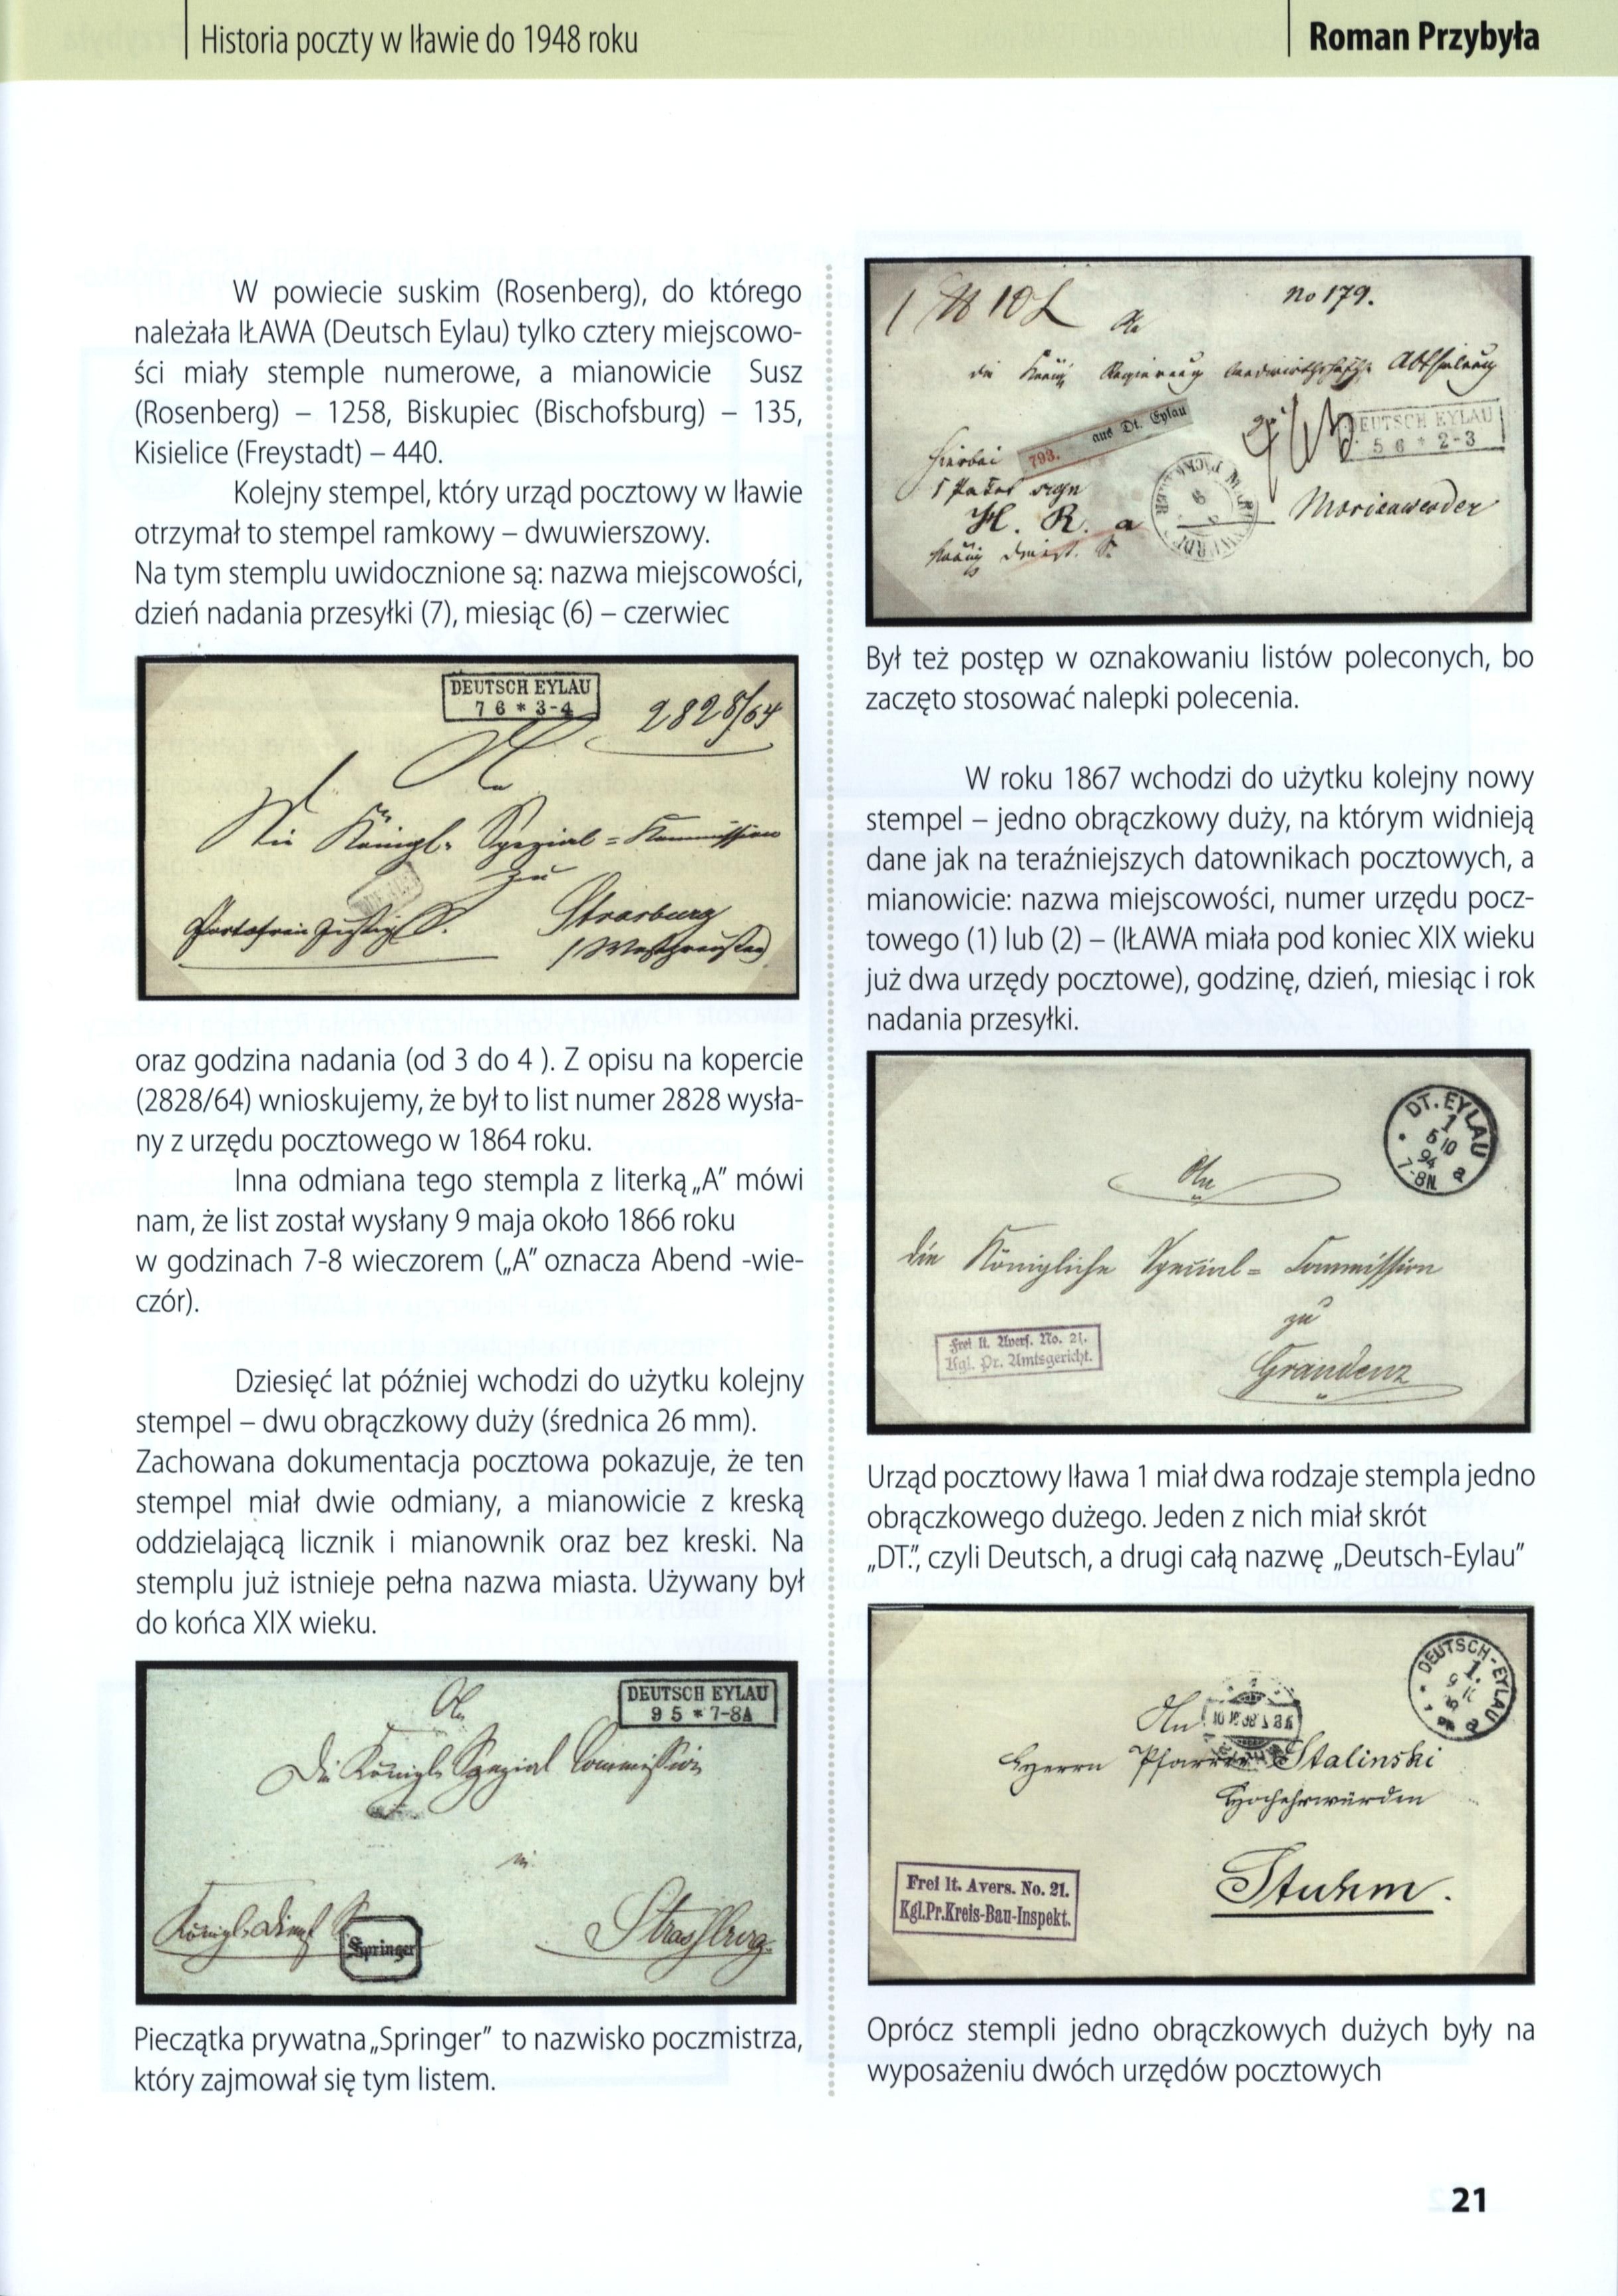 Historia poczty w Iławie do 1948 roku
Roman Przybyła
W powiecie suskim (Rosenberg), do którego
należała IŁAWA (Deutsch Eylau) tylko cztery miejscowo-
ści miały stemple numerowe, a mianowicie Susz
(Rosenberg) – 1258, Biskupiec (Bischofsburg) – 135,
Kisielice (Freystadt) – 440.
Kolejny stempel, który urząd pocztowy w Iławie
otrzymał to stempel ramkowy – dwuwierszowy.
Na tym stemplu uwidocznione są: nazwa miejscowości,
dzień nadania przesyłki (7), miesiąc (6) – czerwiec
DEUTSCH EYLAU
7 6 * 3-4
2828/64
Strasburg
oraz godzina nadania (od 3 do 4 ). Z opisu na kopercie
(2828/64) wnioskujemy, że był to list numer 2828 wysła-
ny z urzędu pocztowego w 1864 roku.
Inna odmiana tego stempla z literką „A” mówi
nam, że list został wysłany 9 maja około 1866 roku
w godzinach 7-8 wieczorem („A” oznacza Abend -wie-
czór).
Dziesięć lat później wchodzi do użytku kolejny
stempel – dwu obrączkowy duży (średnica 26 mm).
Zachowana dokumentacja pocztowa pokazuje, że ten
stempel miał dwie odmiany, a mianowicie z kreską
oddzielającą licznik i mianownik oraz bez kreski. Na
stemplu już istnieje pełna nazwa miasta. Używany był
do końca XIX wieku.
DEUTSCH EYLAU
9 5 * 7-8A
Springer
Pieczątka prywatna „Springer” to nazwisko poczmistrza,
który zajmował się tym listem.
No 179.
aus Dt. Eylau
793.
DEUTSCH EYLAU
5 6 * 2-3
Marienwerder
Był też postęp w oznakowaniu listów poleconych, bo
zaczęto stosować nalepki polecenia.
W roku 1867 wchodzi do użytku kolejny nowy
stempel – jedno obrączkowy duży, na którym widnieją
dane jak na teraźniejszych datownikach pocztowych, a
mianowicie: nazwa miejscowości, numer urzędu pocz-
towego (1) lub (2) – (IŁAWA miała pod koniec XIX wieku
już dwa urzędy pocztowe), godzinę, dzień, miesiąc i rok
nadania przesyłki.
DT. EYLAU
1
5 10
94
7-8N. a
An
die Königliche Special= Commission
zu
Graudenz
Frei lt. Avers. No. 21.
Kgl. Pr. Amtsgericht.
Urząd pocztowy Iława 1 miał dwa rodzaje stempla jedno
obrączkowego dużego. Jeden z nich miał skrót
„DT.”, czyli Deutsch, a drugi całą nazwę „Deutsch-Eylau”
DEUTSCH-EYLAU
1.
An
Herrn Pfarrer Stalinski
Hochehrwürden
Stuhm.
Frei lt. Avers. No. 21.
Kgl.Pr.Kreis-Bau-Inspekt.
Oprócz stempli jedno obrączkowych dużych były na
wyposażeniu dwóch urzędów pocztowych
21